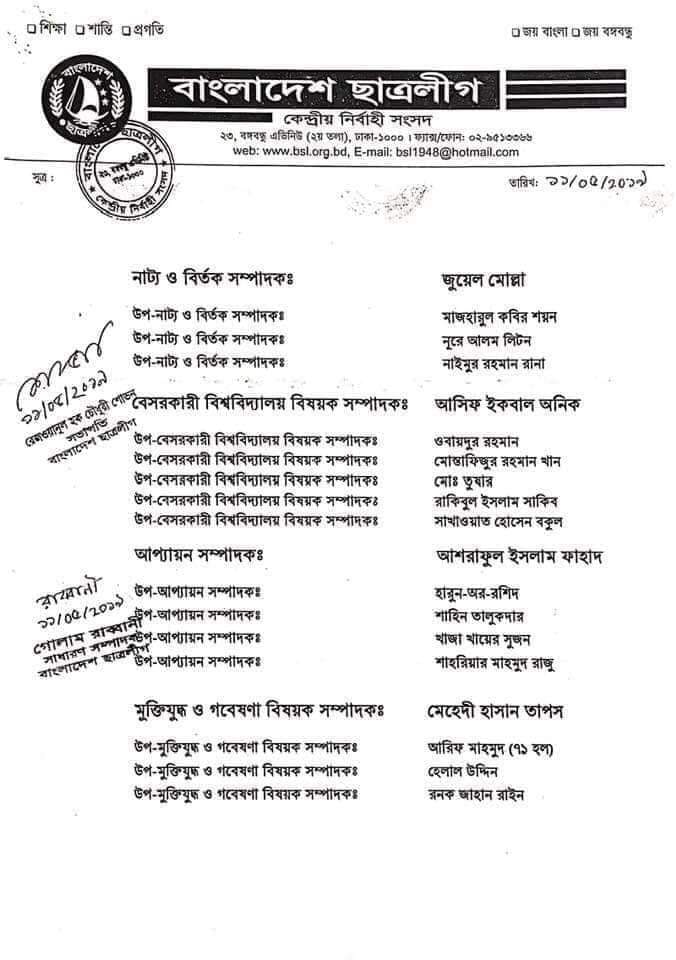 □ শিক্ষা □ শান্তি □ প্রগতি
□ জয় বাংলা □ জয় বঙ্গবন্ধু
বাংলাদেশ
ছাত্রলীগ
বাংলাদেশ ছাত্রলীগ
কেন্দ্রীয় নির্বাহী সংসদ
২৩, বঙ্গবন্ধু এভিনিউ (২য় তলা), ঢাকা-১০০০ । ফ্যাক্স/ফোন: ০২-৯৫১৩৩৬৬
web: www.bsl.org.bd, E-mail: bsl1948@hotmail.com
বাংলাদেশ ছাত্রলীগ
২৩, বঙ্গবন্ধু এভিনিউ
ঢাকা-১০০০
কেন্দ্রীয় নির্বাহী সংসদ
সূত্র :
তারিখ: ১১/০৫/২০১৯
নাট্য ও বির্তক সম্পাদকঃ জুয়েল মোল্লা
উপ-নাট্য ও বির্তক সম্পাদকঃ মাজহারুল কবির শয়ন
উপ-নাট্য ও বির্তক সম্পাদকঃ নূরে আলম লিটন
উপ-নাট্য ও বির্তক সম্পাদকঃ নাইমুর রহমান রানা
১১/০৫/২০১৯
রেজওয়ানুল হক চৌধুরী শোভন
সভাপতি
বাংলাদেশ ছাত্রলীগ
বেসরকারী বিশ্ববিদ্যালয় বিষয়ক সম্পাদকঃ আসিফ ইকবাল অনিক
উপ-বেসরকারী বিশ্ববিদ্যালয় বিষয়ক সম্পাদকঃ ওবায়দুর রহমান
উপ-বেসরকারী বিশ্ববিদ্যালয় বিষয়ক সম্পাদকঃ মোস্তাফিজুর রহমান খান
উপ-বেসরকারী বিশ্ববিদ্যালয় বিষয়ক সম্পাদকঃ মোঃ তুষার
উপ-বেসরকারী বিশ্ববিদ্যালয় বিষয়ক সম্পাদকঃ রাকিবুল ইসলাম সাকিব
উপ-বেসরকারী বিশ্ববিদ্যালয় বিষয়ক সম্পাদকঃ সাখাওয়াত হোসেন বকুল
আপ্যায়ন সম্পাদকঃ আশরাফুল ইসলাম ফাহাদ
উপ-আপ্যায়ন সম্পাদকঃ হারুন-অর-রশিদ
উপ-আপ্যায়ন সম্পাদকঃ শাহিন তালুকদার
উপ-আপ্যায়ন সম্পাদকঃ খাজা খায়ের সুজন
উপ-আপ্যায়ন সম্পাদকঃ শাহরিয়ার মাহমুদ রাজু
রাব্বানী
১১/০৫/২০১৯
গোলাম রাব্বানী
সাধারণ সম্পাদক
বাংলাদেশ ছাত্রলীগ
মুক্তিযুদ্ধ ও গবেষণা বিষয়ক সম্পাদকঃ মেহেদী হাসান তাপস
উপ-মুক্তিযুদ্ধ ও গবেষণা বিষয়ক সম্পাদকঃ আরিফ মাহমুদ (৭১ হল)
উপ-মুক্তিযুদ্ধ ও গবেষণা বিষয়ক সম্পাদকঃ হেলাল উদ্দিন
উপ-মুক্তিযুদ্ধ ও গবেষণা বিষয়ক সম্পাদকঃ রনক জাহান রাইন